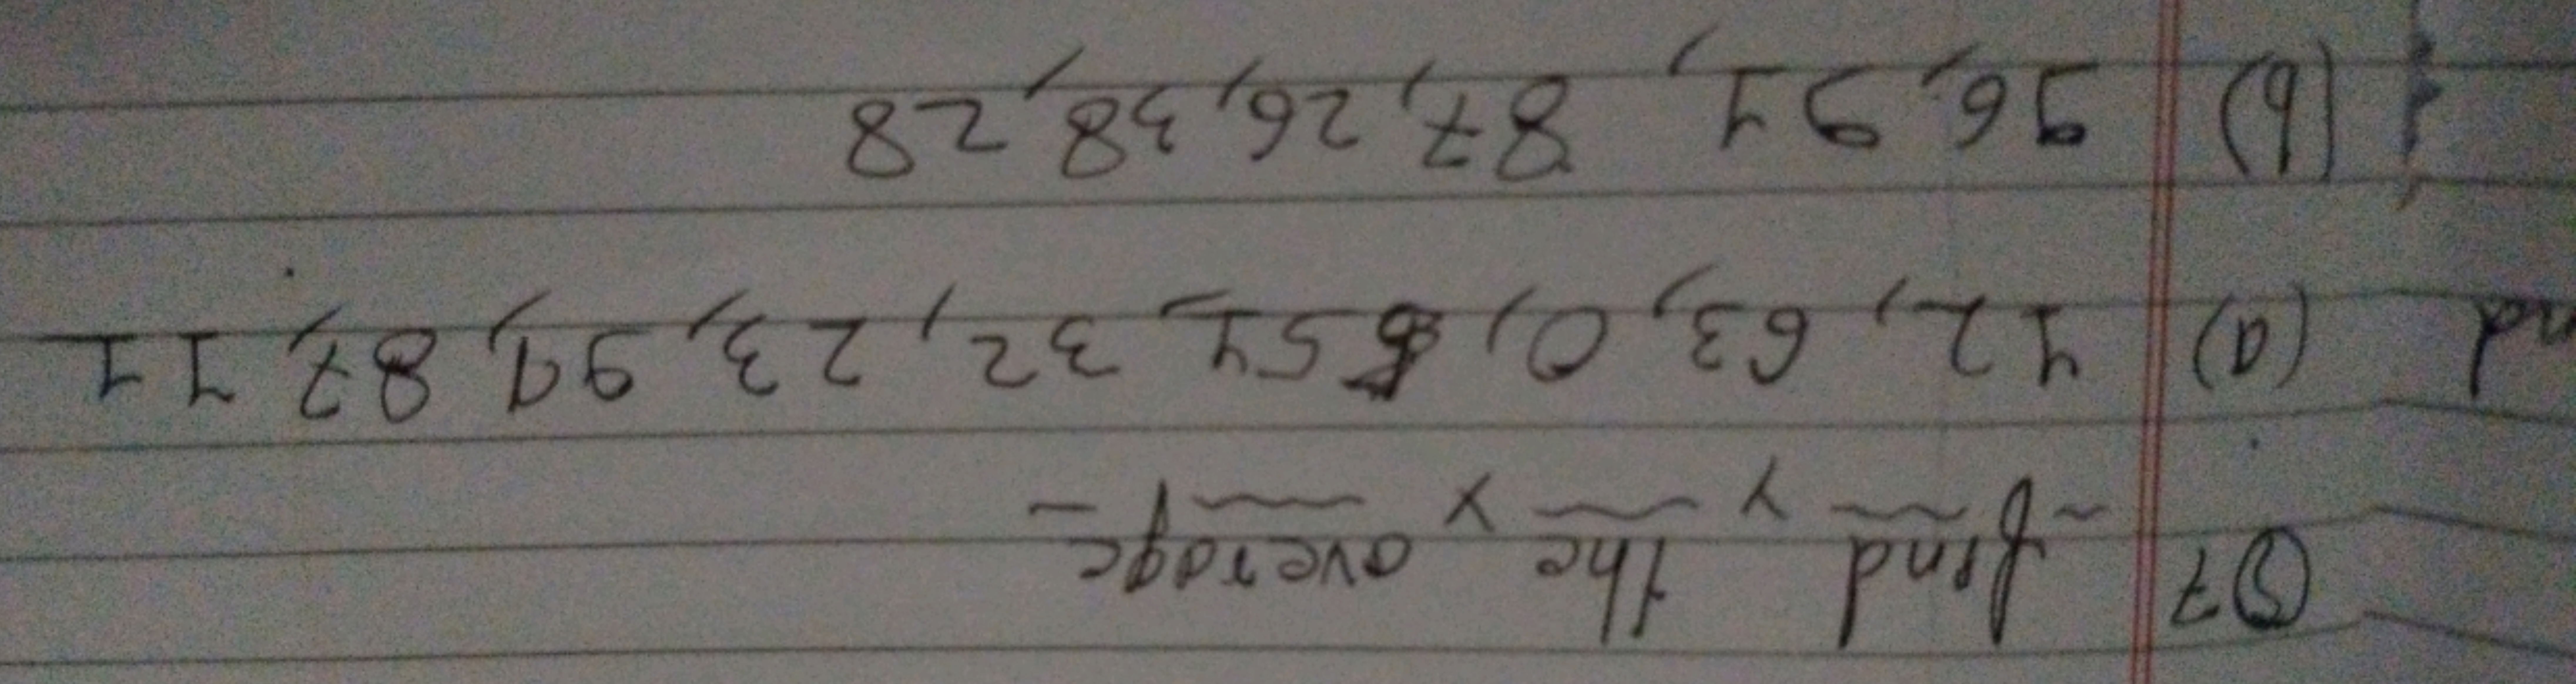 Q7 find the average
(a) 42, 63, 0, 51, 32, 23, 91, 87, 11
(b) 96, 91, 87, 26, 38, 28